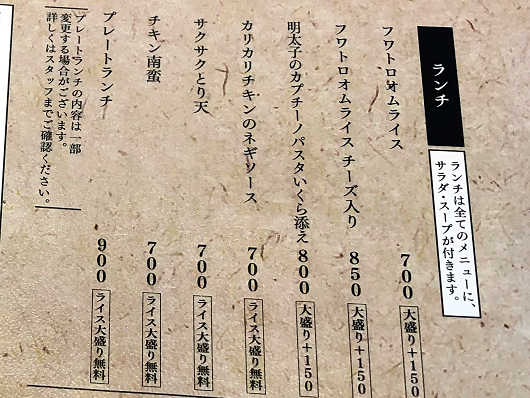 ランチ
ランチは全てのメニューに、
サラダ・スープが付きます。
フワトロオムライス 700 大盛り+150
フワトロオムライス チーズ入り 850 大盛り+150
明太子のカプチーノパスタいくら添え 800 大盛り+150
カリカリチキンのネギソース 700 ライス大盛り無料
サクサクとり天 700 ライス大盛り無料
チキン南蛮 700 ライス大盛り無料
プレートランチ 900 ライス大盛り無料
プレートランチの内容は一部
変更する場合がございます。
詳しくはスタッフまでご確認ください。